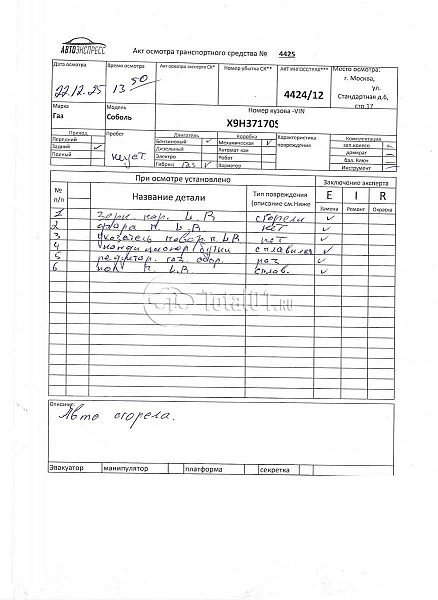 АВТОЭКСПРЕСС
Акт осмотра транспортного средства № 4425
Дата осмотра
Время осмотра
Акт осмотра эксперта СК*
Номер убытка СК**
АКТ ИНГОССТРАХ***
Место осмотра:
22.12.25
13 50
4424/12
г. Москва,
ул.
Стандартная д.6,
стр.17
Марка
Модель
Номер кузова -VIN
Газ
Соболь
X9H37170S
Привод
Пробег
Двигатель
Коробка
Характеристика повреждения
Комплектация
Передний
Бензиновый ✓
Механическая ✓
зап.колесо
Задний ✓
Дизельный
Автомат-кая
домкрат
Полный
Электро
Робот
бал. Ключ
Гибрид Газ ✓
Вариатор
Инструмент
При осмотре установлено
Заключение эксперта
№ п/п
Название детали
Тип повреждения (описание см.Ниже
E I R
Замена Ремонт Окраска
1 л.В сгорели ✓
2 фара п. л.В нет ✓
3 указатель повор. п. л.В нет ✓
4 ✓
5 редуктор. газ. обор. ✓
6 п. л.В. сплав. ✓
Total01.RU
Описание:
Авто сгорела.
Эвакуатор манипулятор платформа секретка